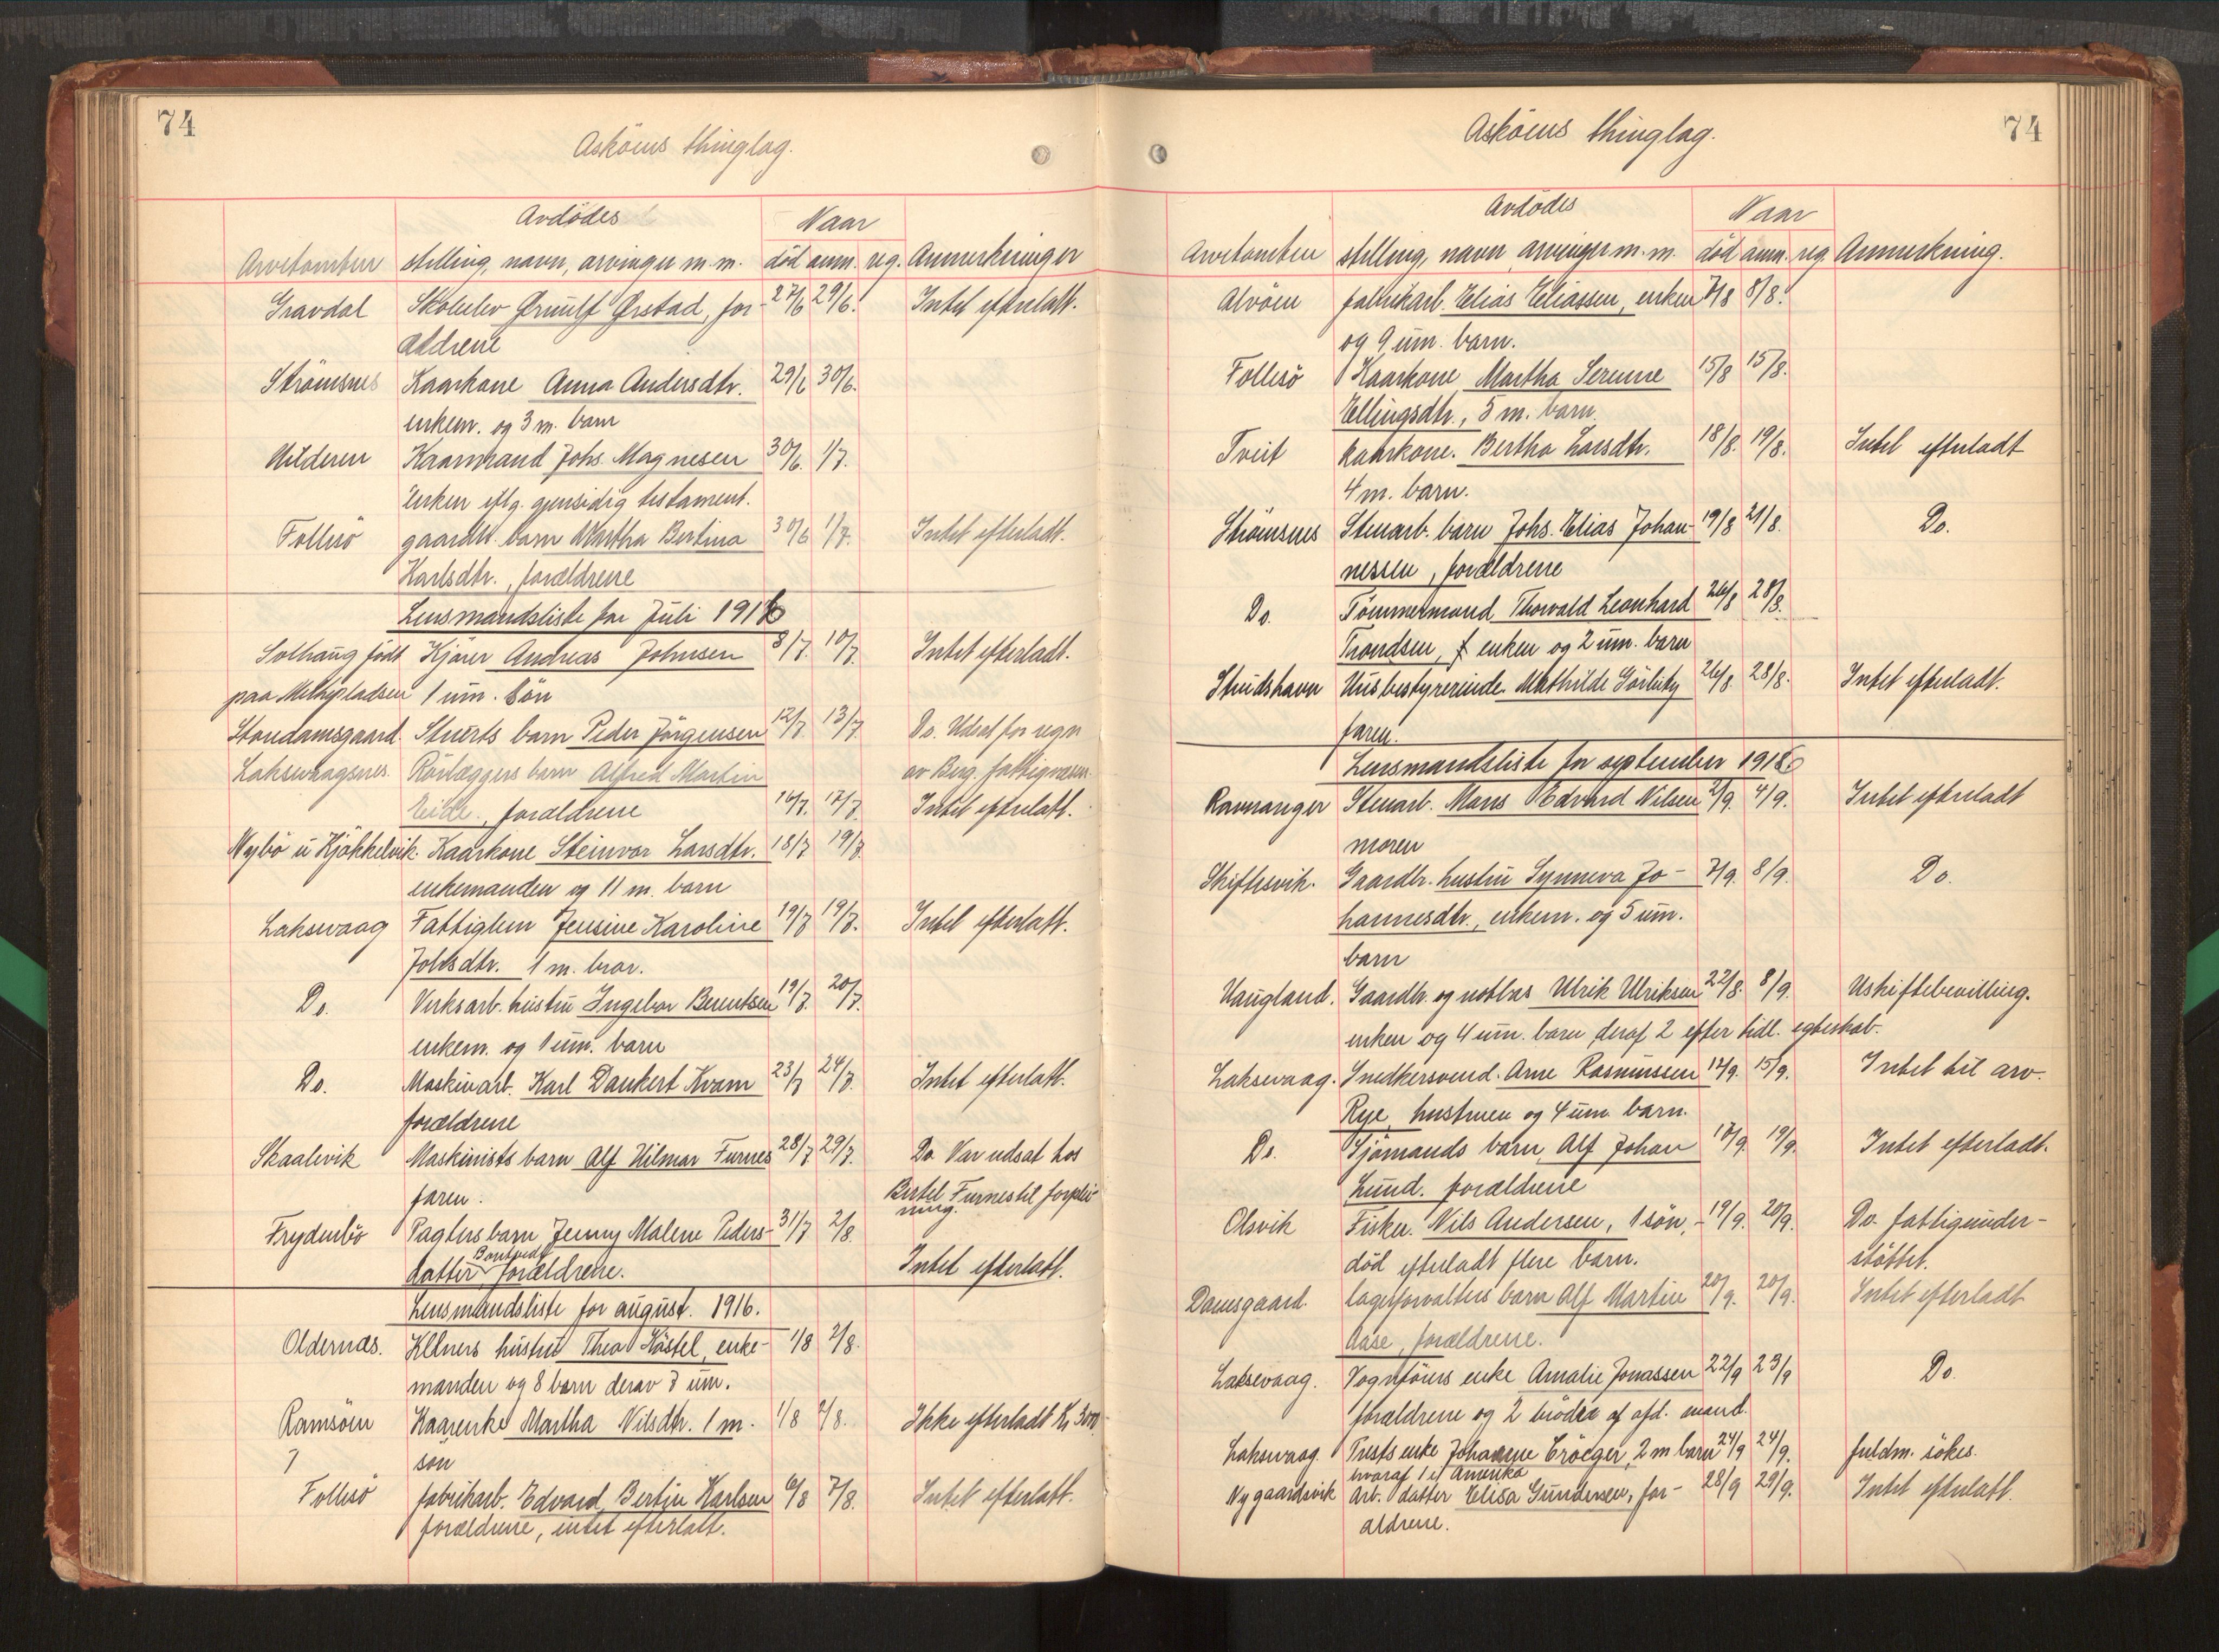 74
Askøens thinglag.
Avdødes Naar
Arvetomten stilling, navn, arvinger m.m. død anm. reg. Anmerkninger
Gravdal Skoleelev Ørnulf Ørstad, for- 27/6 29/6. Intet efterlatt.
ældrene
Strømsnes Kaarkone Anna Andersdtr. 29/6 30/6.
enkem. og 3 m. barn
Hilderen Kaarmand Johs. Magnesen 30/6. 1/7.
Enken eftg. gjensidig testament.
Follesø gaardbr. barn Martha Bertina 30/6 1/7. Intet efterlatt.
Karlsdtr., forældrene
Lensmandsliste for Juli 1916
Solhaug født Kjører Andreas Johnsen 8/7. 10/7. Intet efterladt.
paa Methpladsen 1 um. søn
Stordamsgaard. Stuerts barn Peder Jörgensen 12/7. 13/7 Do. Udsat for regn
Laksevaagsnes. Rörlæggers barn Alfred Martin av Berg. fattigvæsen.
Eide, forældrene 16/7. 17/7. Intet efterlatt.
Nybö u Kjökkelvik. Kaarkone Steinvor Larsdtr. 18/7 19/7.
enkemanden og 11 m. barn
Laksevaag Fattiglem Jensine Karoline 19/7 19/7. Intet efterlatt.
Johsdtr. 1 m. bror.
Do. Verksarb. hustru Ingebor Berentsen 19/7. 20/7.
enkem. og 1 um. barn
Do. Maskinarb. Karl Dankert Kvam 23/7 24/7. Intet efterlatt.
forældrene
Skaalevik Maskinists barn Alf Hilmar Furnes 28/7 29/7. Do. Var udsat hos
faren. Bertel Furnes til forplei-
ning.
Frydenbö Pagters barn Jenny Malene Peders- 31/7 2/8.
datter Bontveit forældrene. Intet efterlatt.
Lensmandsliste for august. 1916.
Oldernæs. Kllners hustru Thea Köstel, enke- 1/8 2/8.
manden og 8 barn derav 7 um.
Ramsöen Kaarenke Martha Nilsdtr. 1 m. 1/8 2/8. Ikke efterladt Kr 3000
søn
Follesö fabrikarb. Edvard Bertin Karlsen 6/8 7/8. Intet efterlatt.
forældrene, intet efterlatt.
74
Askøens thinglag.
Avdødes Naar
Arvetomten stilling, navn arvinger m.m. død anm. reg. Anmerkning.
Alvöen fabrikarb. Elias Eliassen, enken 7/8 8/8.
og 9 um. barn.
Follesö Kaarkone Martha Serine 15/8 15/8.
Ellingsdtr., 5 m. barn.
Tveit kaarkone. Bertha Larsdtr. 18/8. 19/8. Intet efterladt
4 m. barn.
Strömsnes Stenarb. barn Johs. Elias Johan- 19/8 21/8. Do.
nessen, forældrene
Do. Tömmermand Thorvald Leonhard 26/8 28/8.
Trondsen, enken og 2 um. barn
Strudshavn Husbestyrerinde Mathilde Görbitz 26/8. 28/8. Intet efterladt.
faren.
Lensmandsliste for september 1916
Ravnanger Stenarb. Mons Edvard Nilsen 2/9. 4/9. Intet efterladt
moren
Skiftesvik. Gaardbr. hustru Synneva Jo- 7/9. 8/9. Do.
hannesdtr., enkem. og 5 um.
barn
Haugland. Gaardbr. og notbas Ulrik Ulriksen 22/8. 8/9. Uskiftebevilling.
enken og 4 um. barn deraf 2 efter tidl. egteskab.
Laksevaag. Snedkersvend. Arne Rasmussen 14/9. 15/9. Intet til arv.
Rye, hustruen og 4 um. barn.
Do. Sjömands barn Alf Johan 17/9. 19/9. Intet efterladt.
Lund. forældrene
Olsvik Fisker. Nils Andersen, 1 søn, 19/9. 20/9. Do. fattigunder-
død efterladt flere barn. støttet.
Damsgaard. lagerforvalters barn Alf Martin 20/9. 20/9. Intet efterladt
Aase, forældrene.
Laksevaag. Vognförers enke Amalie Jonassen 22/9 23/9 Do.
forældrene og 2 brödre af afd. mand.
Laksevaag. Trests enke Johanne Cröeger, 2 m barn 24/9 24/9. fuldm. sökes.
hvoraf 1 i Amerika
Nygaardsvik arb. datter Elisa Gundersen, for- 28/9 29/9. Intet efterlatt.
ældrene.